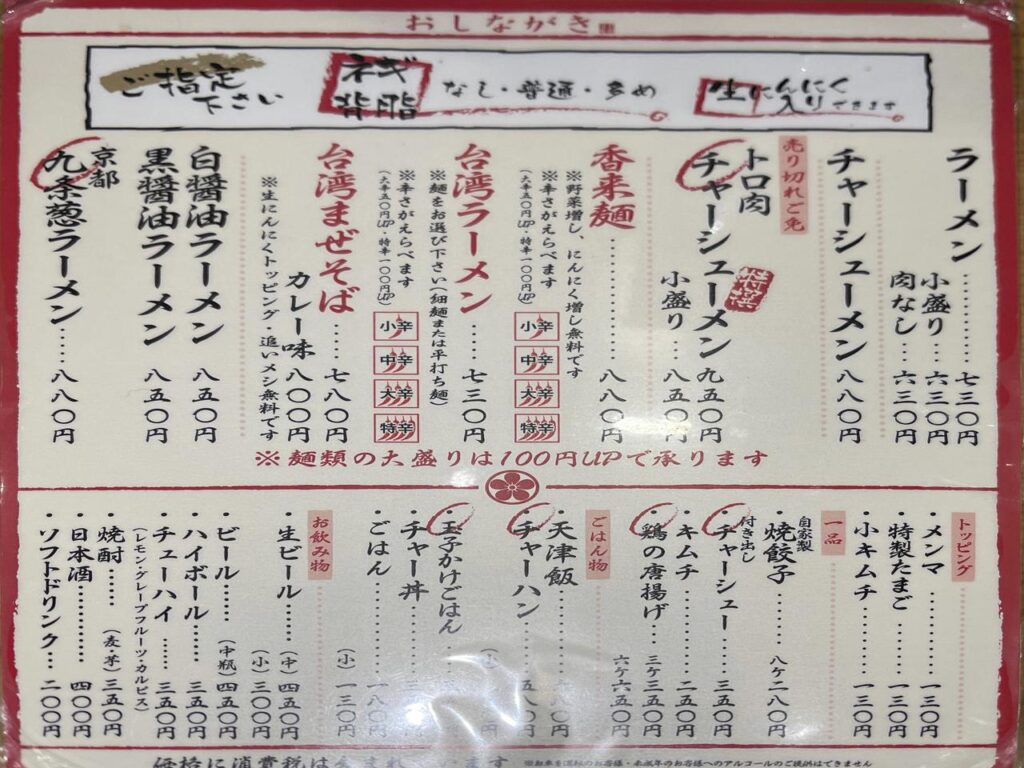 おしながき
ご指定下さい
ネギ
背脂
なし・普通・多め
生にんにく入りできます
ラーメン………… 七三〇円
小盛り… 六三〇円
肉なし… 六三〇円
チャーシューメン 八八〇円
売り切れご免
トロ肉
チャーシューメン 九五〇円
小盛り… 八五〇円
香来麺………… 八八〇円
※野菜増し、にんにく増し無料です
※辛さがえらべます
(大辛五〇円UP・特辛一〇〇円UP)
小辛
中辛
大辛
特辛
台湾ラーメン… 七三〇円
※麺をお選び下さい(細麺または平打ち麺)
※辛さがえらべます
(大辛五〇円UP・特辛一〇〇円UP)
小辛
中辛
大辛
特辛
台湾まぜそば…… 七八〇円
カレー味 八〇〇円
※生にんにくトッピング・追いメシ無料です
白醤油ラーメン 八五〇円
黒醤油ラーメン 八五〇円
京都
九条葱ラーメン…… 八八〇円
※麺類の大盛りは100円UPで承ります
トッピング
・メンマ………… 一三〇円
・特製たまご…… 一三〇円
・小キムチ……… 一三〇円
一品
自家製
・焼餃子…… 八ケ 二八〇円
付き出し
・チャーシュー… 三五〇円
・キムチ………… 二五〇円
・鶏の唐揚げ… 三ケ 三五〇円
六ケ 六五〇円
ごはん物
・天津飯………
・チャーハン…… 五八〇円
・玉子かけごはん…
・チャー丼………
・ごはん………… 一八〇円
(小) 一三〇円
お飲み物
・生ビール…… (中) 四五〇円
(小) 三〇〇円
・ビール…… (中瓶) 四五〇円
・ハイボール…… 三五〇円
・チューハイ…… 三五〇円
(レモン・グレープフルーツ・カルピス)
・焼酎…… (麦・芋) 三五〇円
・日本酒………… 四〇〇円
・ソフトドリンク… 二〇〇円
価格に消費税は含まれています